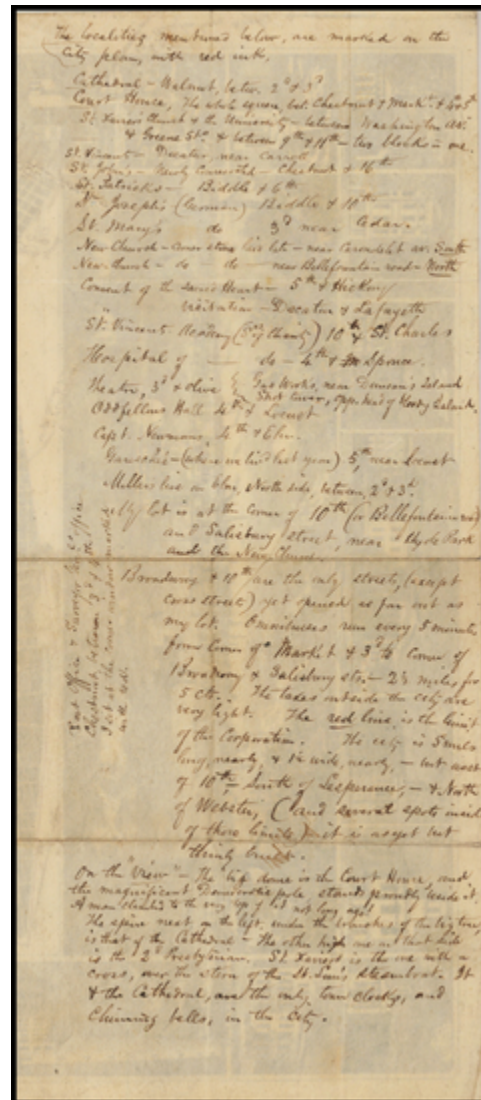 The localities mentioned below, are marked on the
City plan, with red ink.
Cathedral – Walnut, betw. 2d & 3d
Court House, The whole square, bet. Chestnut & Mark. & 4th & 5th
St. Xavier's Church & the University – between Washington av.
& Greene Sts. & between 9th & 11th – two blocks in one.
St. Vincent – Decatur, near Carroll
St. John's – Newly Chestnut & 16th
St. Patricks – Biddle & 6th
St. Joseph's (German) Biddle & 10th
St. Mary's do 3d near Cedar.
New Church – corner stone laid late – near Carondelet av. South
New Church – do – do – near Bellefontaine road – North
Convent of the Sacred Heart – 5th & Hickory
Visitation – Decatur & Lafayette
St. Vincent Academy (Srs of Charity) 10th & St. Charles
Hospital of — do – 4th & Spruce.
Theatre, 3d & Olive Gas Works, near Duncan's Island
Shot tower, opp. head of Bloody Island.
Oddfellows Hall 4th & Locust
Capt. Newmans, 4th & Elm.
(where we liv'd last year) 5th, near Locust
Millers live on Elm, North side, between, 2d & 3d.
My lot is at the corner of 10th (or Bellefontaine road)
and Salisbury street, near Hyde Park
and the New Church.
Post Office & Surveyor Gen's office
Chestnut, between 3d & 4th
at the corner marked
with red.
Broadway & 10th, are the only streets, (except
cross streets) yet opened as far out as
my lot. Omnibuses run every 5 minutes
from Corner of Market & 3d to Corner of
Broadway & Salisbury sts. – 2½ miles for
5 cts. The taxes outside the city are
very light. The red line is the limit
of the Corporation. The city is 5 miles
long, nearly, & wide, nearly, – but west
of 10th, – South of Lesperance, – & North
of Webster, (and several spots inside
of those limits) – it is as yet but
thinly built.
On the "View" – The big dome is the Court House, and
the magnificent Democratic pole, stands proudly beside it.
A man climbed to the very top of it not long ago!
The spire next on the left, under the branches of the big tree,
is that of the Cathedral – The other high one on that side
is the 2d Presbyterian. St. Xavier's is the one with a
cross, over the stern of the St. Louis steamboat. It
& the Cathedral, have the only town clocks, and
Chiming bells, in the city.